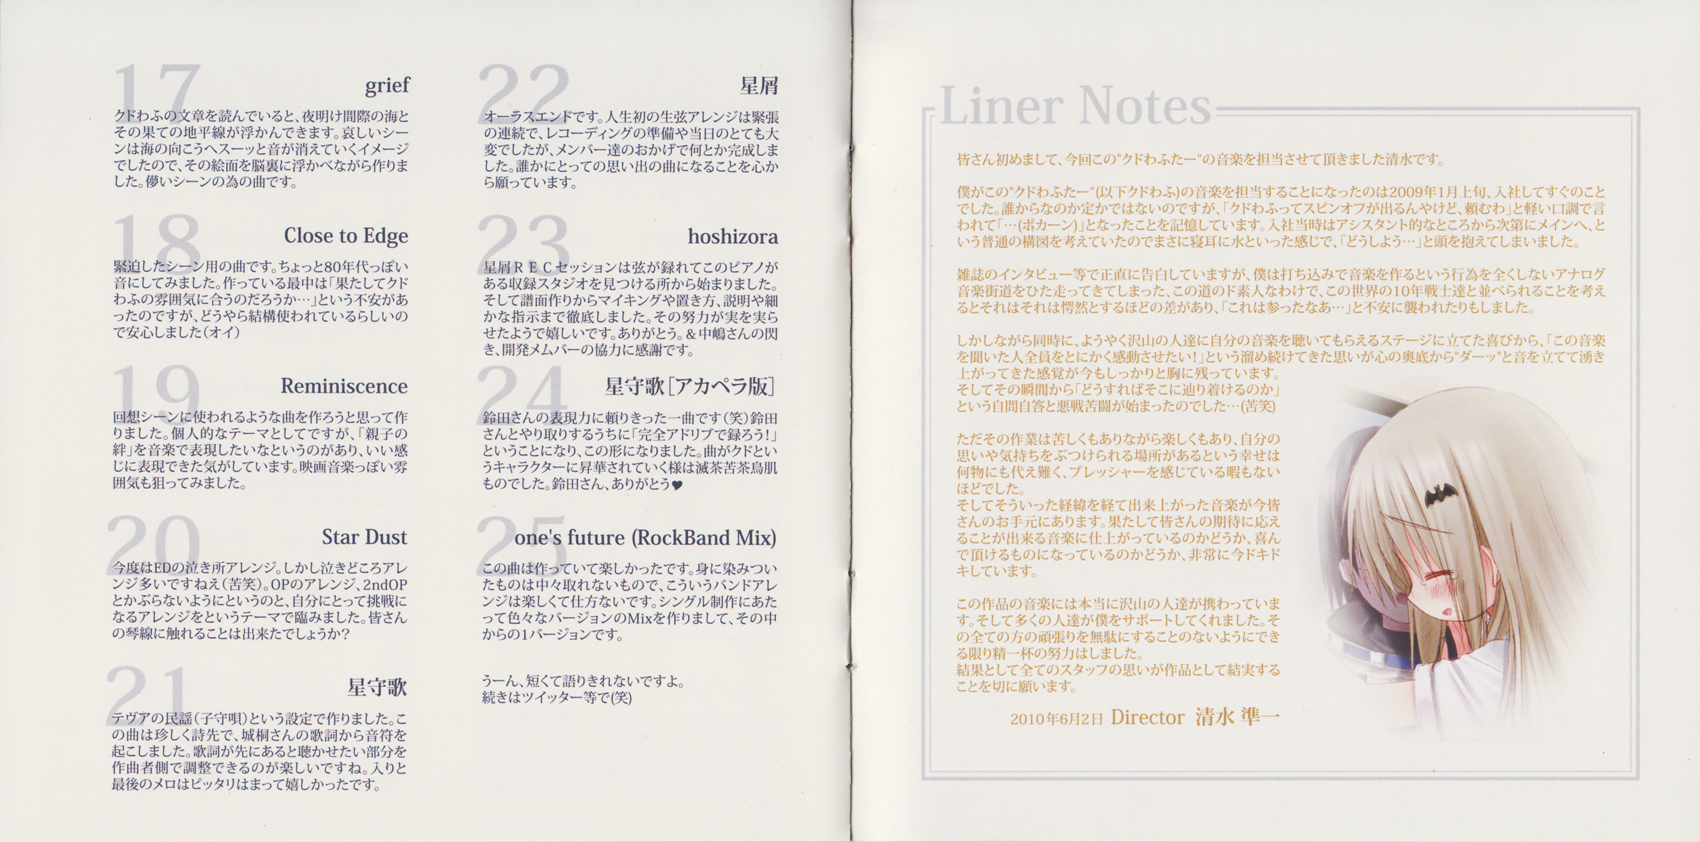 17
grief
クドわふの文章を読んでいると、夜明け間際の海と
その果ての地平線が浮かんできます。哀しいシー
ンは海の向こうへスーッと音が消えていくイメージ
でしたので、その絵面を脳裏に浮かべながら作りま
した。儚いシーンの為の曲です。
18
Close to Edge
緊迫したシーン用の曲です。ちょっと80年代っぽい
音にしてみました。作っている最中は「果たしてクド
わふの雰囲気に合うのだろうか…」という不安があ
ったのですが、どうやら結構使われているらしいの
で安心しました（オイ）
19
Reminiscence
回想シーンに使われるような曲を作ろうと思って作
りました。個人的なテーマとしてですが、「親子の
絆」を音楽で表現したいなというのがあり、いい感
じに表現できた気がしています。映画音楽っぽい雰
囲気も狙ってみました。
20
Star Dust
今度はEDの泣き所アレンジ。しかし泣きどころアレ
ンジ多いですねえ（苦笑）。OPのアレンジ、2ndOP
とかぶらないようにというのと、自分にとって挑戦に
なるアレンジをというテーマで臨みました。皆さん
の琴線に触れることは出来たでしょうか？
21
星守歌
テヴアの民謡（子守唄）という設定で作りました。こ
の曲は珍しく詩先で、城桐さんの歌詞から音符を
起こしました。歌詞が先にあると聴かせたい部分を
作曲者側で調整できるのが楽しいですね。入りと
最後のメロはピッタリはまって嬉しかったです。
22
星屑
オーラスエンドです。人生初の生弦アレンジは緊張
の連続で、レコーディングの準備や当日のとても大
変でしたが、メンバー達のおかげで何とか完成しま
した。誰かにとっての思い出の曲になることを心か
ら願っています。
23
hoshizora
星屑ＲＥＣセッションは弦が録れてこのピアノが
ある収録スタジオを見つける所から始まりました。
そして譜面作りからマイキングや置き方、説明や細
かな指示まで徹底しました。その努力が実を実ら
せたようで嬉しいです。ありがとう。＆中嶋さんの閃
き、開発メムバーの協力に感謝です。
24
星守歌［アカペラ版］
鈴田さんの表現力に頼りきった一曲です（笑）鈴田
さんとやり取りするうちに「完全アドリブで録ろう！」
ということになり、この形になりました。曲がクドとい
うキャラクターに昇華されていく様は滅茶苦茶鳥肌
ものでした。鈴田さん、ありがとう♥
25
one's future (RockBand Mix)
この曲は作っていて楽しかったです。身に染みつい
たものは中々取れないもので、こういうバンドアレ
ンジは楽しくて仕方ないです。シングル制作にあた
って色々なバージョンのMixを作りまして、その中
からの1バージョンです。
うーん、短くて語りきれないですよ。
続きはツイッター等で(笑)
Liner Notes
皆さん初めまして、今回この"クドわふたー"の音楽を担当させて頂きました清水です。
僕がこの"クドわふたー"(以下クドわふ)の音楽を担当することになったのは2009年1月上旬、入社してすぐのこと
でした。誰からなのか定かではないのですが、「クドわふってスピンオフが出るんやけど、頼むわ」と軽い口調で言
われて「…(ポカーン)」となったことを記憶しています。入社当時はアシスタント的なところから次第にメインへ、と
いう普通の構図を考えていたのでまさに寝耳に水といった感じで、「どうしよう…」と頭を抱えてしまいました。
雑誌のインタビュー等で正直に告白していますが、僕は打ち込みで音楽を作るという行為を全くしないアナログ
音楽街道をひた走ってきてしまった、この道のド素人なわけで、この世界の10年戦士達と並べられることを考え
るとそれはそれは愕然とするほどの差があり、「これは参ったなあ…」と不安に襲われたりもしました。
しかしながら同時に、ようやく沢山の人達に自分の音楽を聴いてもらえるステージに立てた喜びから、「この音楽
を聞いた人全員をとにかく感動させたい！」という溜め続けてきた思いが心の奥底から"ダーッ"と音を立てて湧き
上がってきた感覚が今もしっかりと胸に残っています。
そしてその瞬間から「どうすればそこに辿り着けるのか」
という自問自答と悪戦苦闘が始まったのでした…(苦笑)
ただその作業は苦しくもありながら楽しくもあり、自分の
思いや気持ちをぶつけられる場所があるという幸せは
何物にも代え難く、プレッシャーを感じている暇もない
ほどでした。
そしてそういった経緯を経て出来上がった音楽が今皆
さんのお手元にあります。果たして皆さんの期待に応え
ることが出来る音楽に仕上がっているのかどうか、喜ん
で頂けるものになっているのかどうか、非常に今ドキド
キしています。
この作品の音楽には本当に沢山の人達が携わっていま
す。そして多くの人達が僕をサポートしてくれました。そ
の全ての方の頑張りを無駄にすることのないようにでき
る限り精一杯の努力はしました。
結果として全てのスタッフの思いが作品として結実する
ことを切に願います。
2010年6月2日 Director 清水 準一